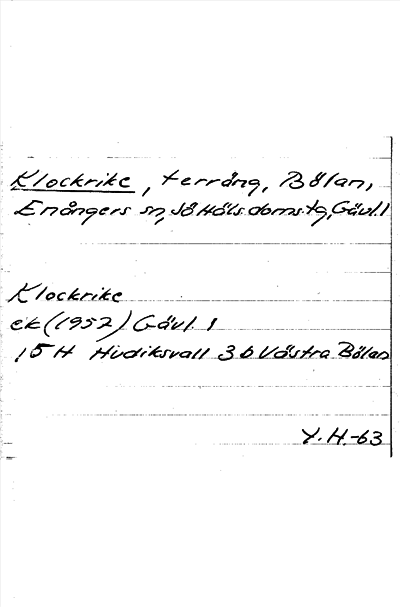 Klockrike, terräng, Bölan,
Enångers sn, Sö Häls. doms. tg, Gävl. l
Klockrike
ek (1952) Gävl. l
15 H Hudiksvall 3 b Västra Bölan
Y. H. -63